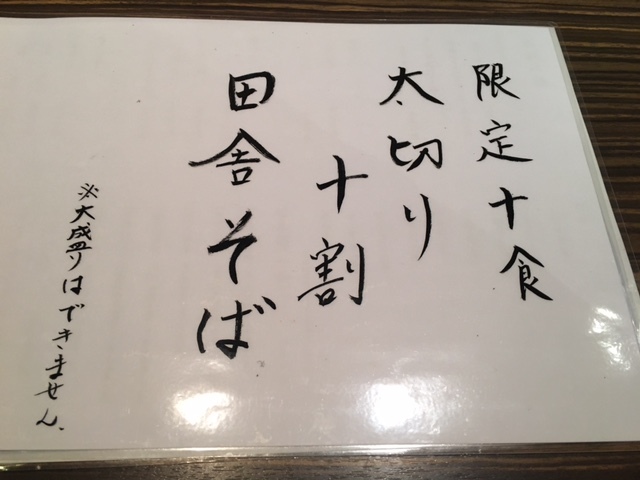 限定十食
太切り
十割
田舎そば
※大盛りはできません。